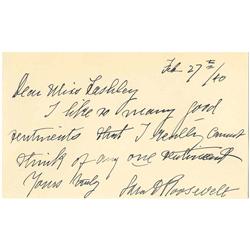 Feb 27th/40
Dear Miss Lashley
I like so many good
sentiments that I really cannot
think of any one sentiment
Yours truly
Sara D Roosevelt